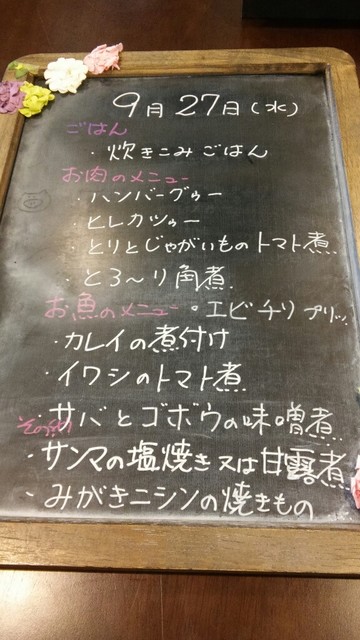 9月27日(水)
ごはん
・炊きこみごはん
お肉のメニュー
・ハンバーグゥー
・ヒレカツゥー
・とりとじゃがいものトマト煮
・とろ〜り角煮
お魚のメニュー ・エビチリプリッ
・カレイの煮付け
・イワシのトマト煮
・サバとゴボウの味噌煮
その他
・サンマの塩焼き又は甘露煮
・みがきニシンの焼きもの